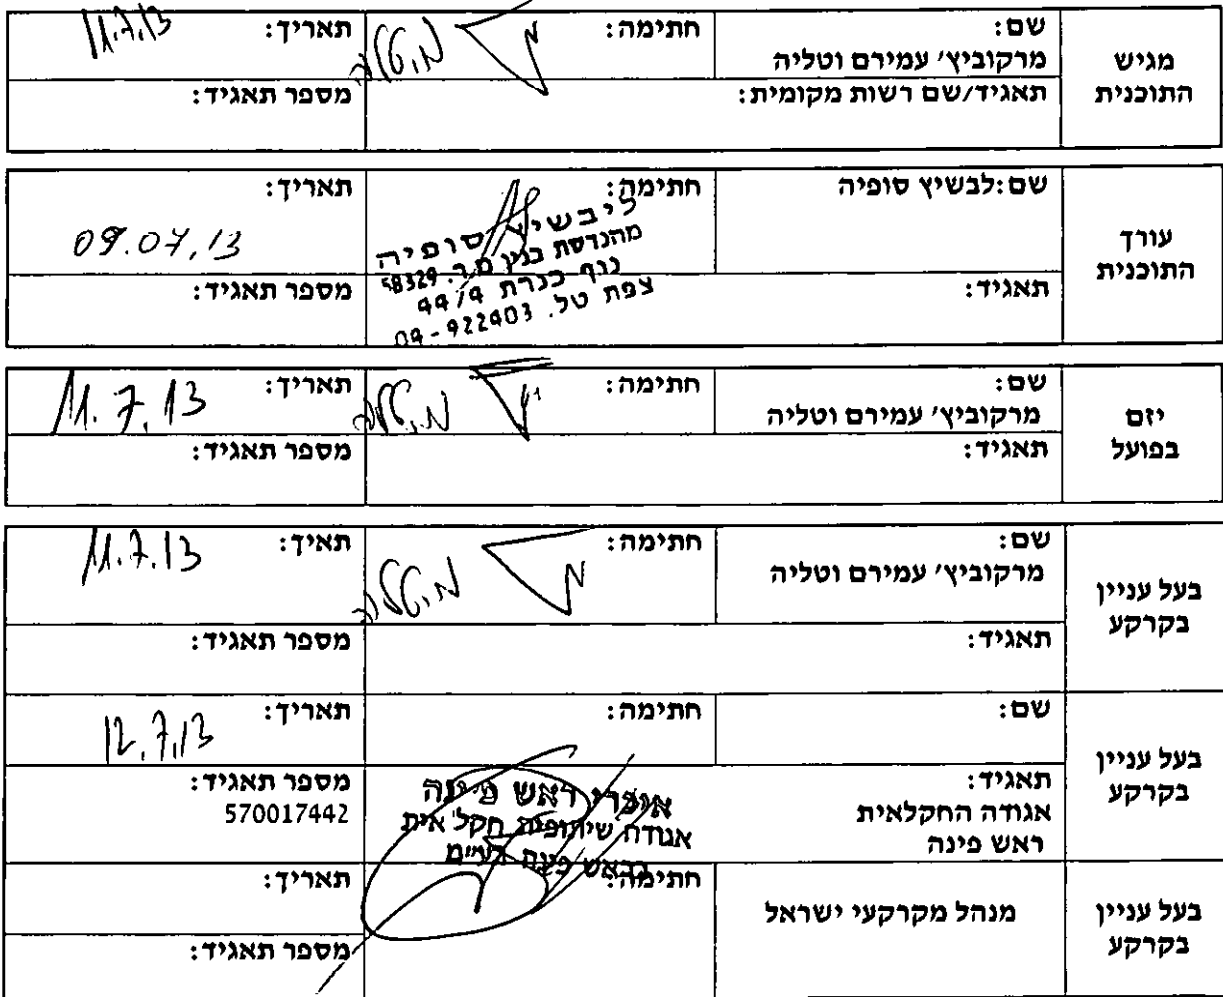 מגיש
התוכנית
שם:
מרקוביץ׳ עמירם וטליה
חתימה:
תאריך:
11.7.13
תאגיד/שם רשות מקומית:
מספר תאגיד:
עורך
התוכנית
שם:לבשיץ סופיה
חתימה:
ליבשיץ סופיה
מהנדסת בנין מ.ר. 58329
נוף כנרת 44/4
צפת טל.
תאריך:
09.07.13
תאגיד:
מספר תאגיד:
יזם
בפועל
שם:
מרקוביץ׳ עמירם וטליה
חתימה:
תאריך:
11.7.13
תאגיד:
מספר תאגיד:
בעל עניין
בקרקע
שם:
מרקוביץ׳ עמירם וטליה
חתימה:
תאיך:
11.7.13
תאגיד:
מספר תאגיד:
בעל עניין
בקרקע
שם:
חתימה:
תאריך:
12.7.13
תאגיד:
אגודה החקלאית
ראש פינה
איכרי ראש פינה
אגודה שיתופית חקלאית
בראש פינה בע״מ
מספר תאגיד:
570017442
בעל עניין
בקרקע
מנהל מקרקעי ישראל
חתימה:
תאריך:
מספר תאגיד: